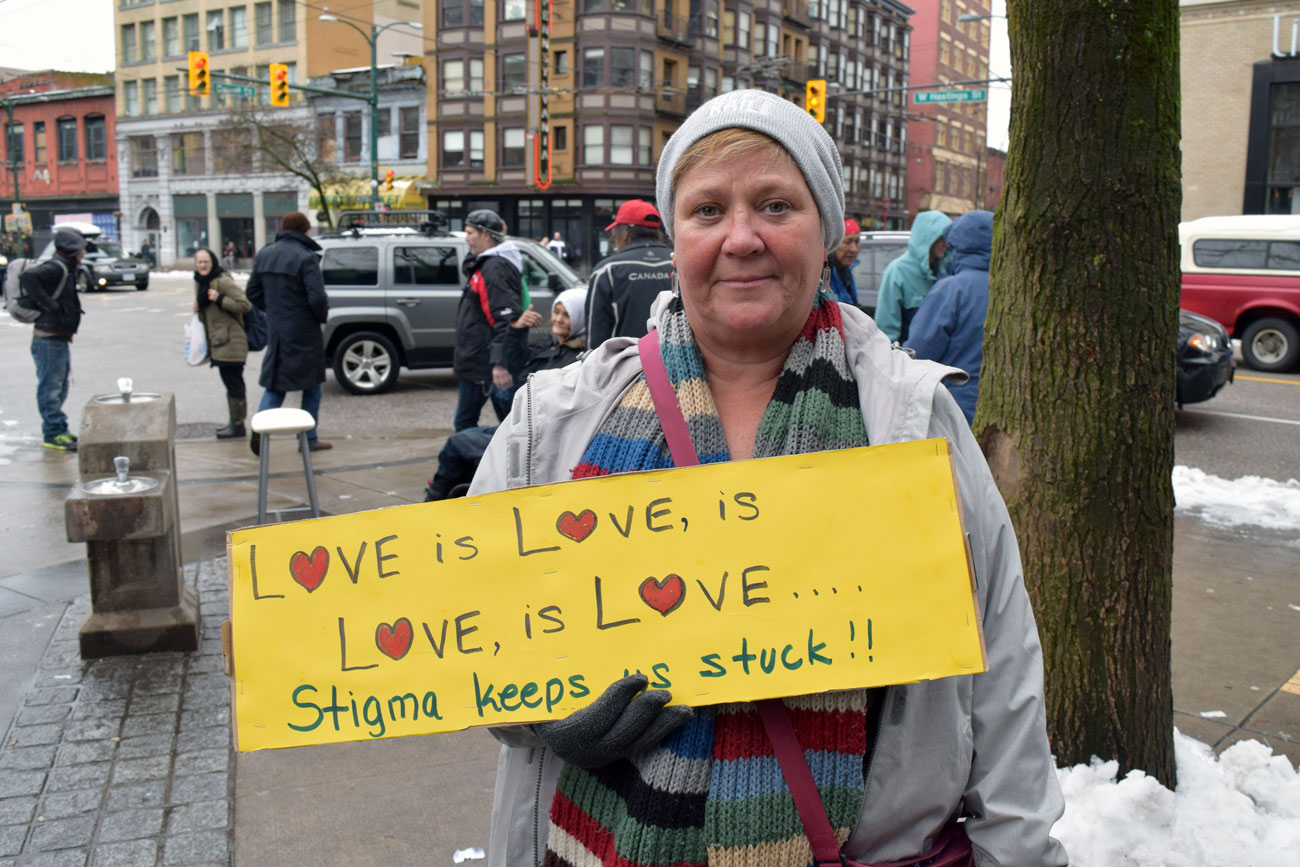 W Hastings St
CANADA
LOVE is LOVE, is
LOVE, is LOVE....
Stigma keeps us stuck!!